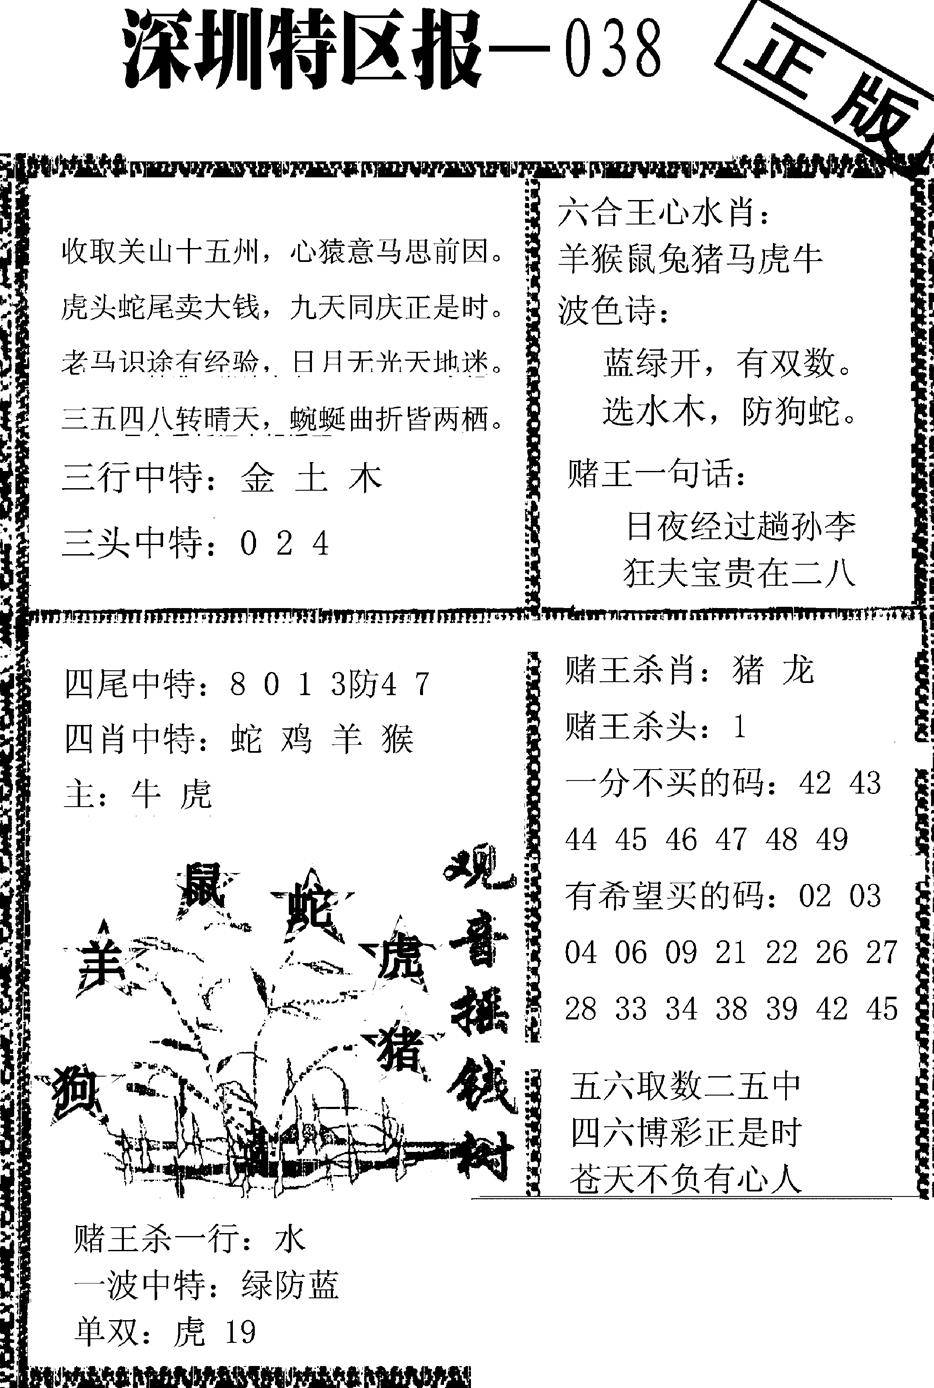 深圳特区报—038
正版
收取关山十五州，心猿意马思前因。
虎头蛇尾卖大钱，九天同庆正是时。
老马识途有经验，日月无光天地迷。
三五四八转晴天，蜿蜒曲折皆两栖。
三行中特：金 土 木
三头中特：0 2 4
六合王心水肖：
羊猴鼠兔猪马虎牛
波色诗：
蓝绿开，有双数。
选水木，防狗蛇。
赌王一句话：
日夜经过趟孙李
狂夫宝贵在二八
四尾中特：8 0 1 3防4 7
四肖中特：蛇 鸡 羊 猴
主：牛 虎
鼠
蛇
羊
虎
猪
狗
观音摇钱树
赌王杀一行：水
一波中特：绿防蓝
单双：虎 19
赌王杀肖：猪 龙
赌王杀头：1
一分不买的码：42 43
44 45 46 47 48 49
有希望买的码：02 03
04 06 09 21 22 26 27
28 33 34 38 39 42 45
五六取数二五中
四六博彩正是时
苍天不负有心人